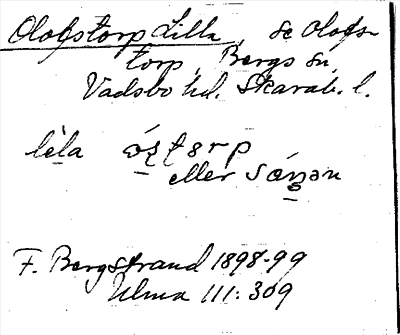 Olofstorp Lilla, se Olofs-
torp, Bergs sn,
Vadsbo hd. Skarab. l.
lèla
eller
F. Bergstrand 1898-99
Ulma 111:309